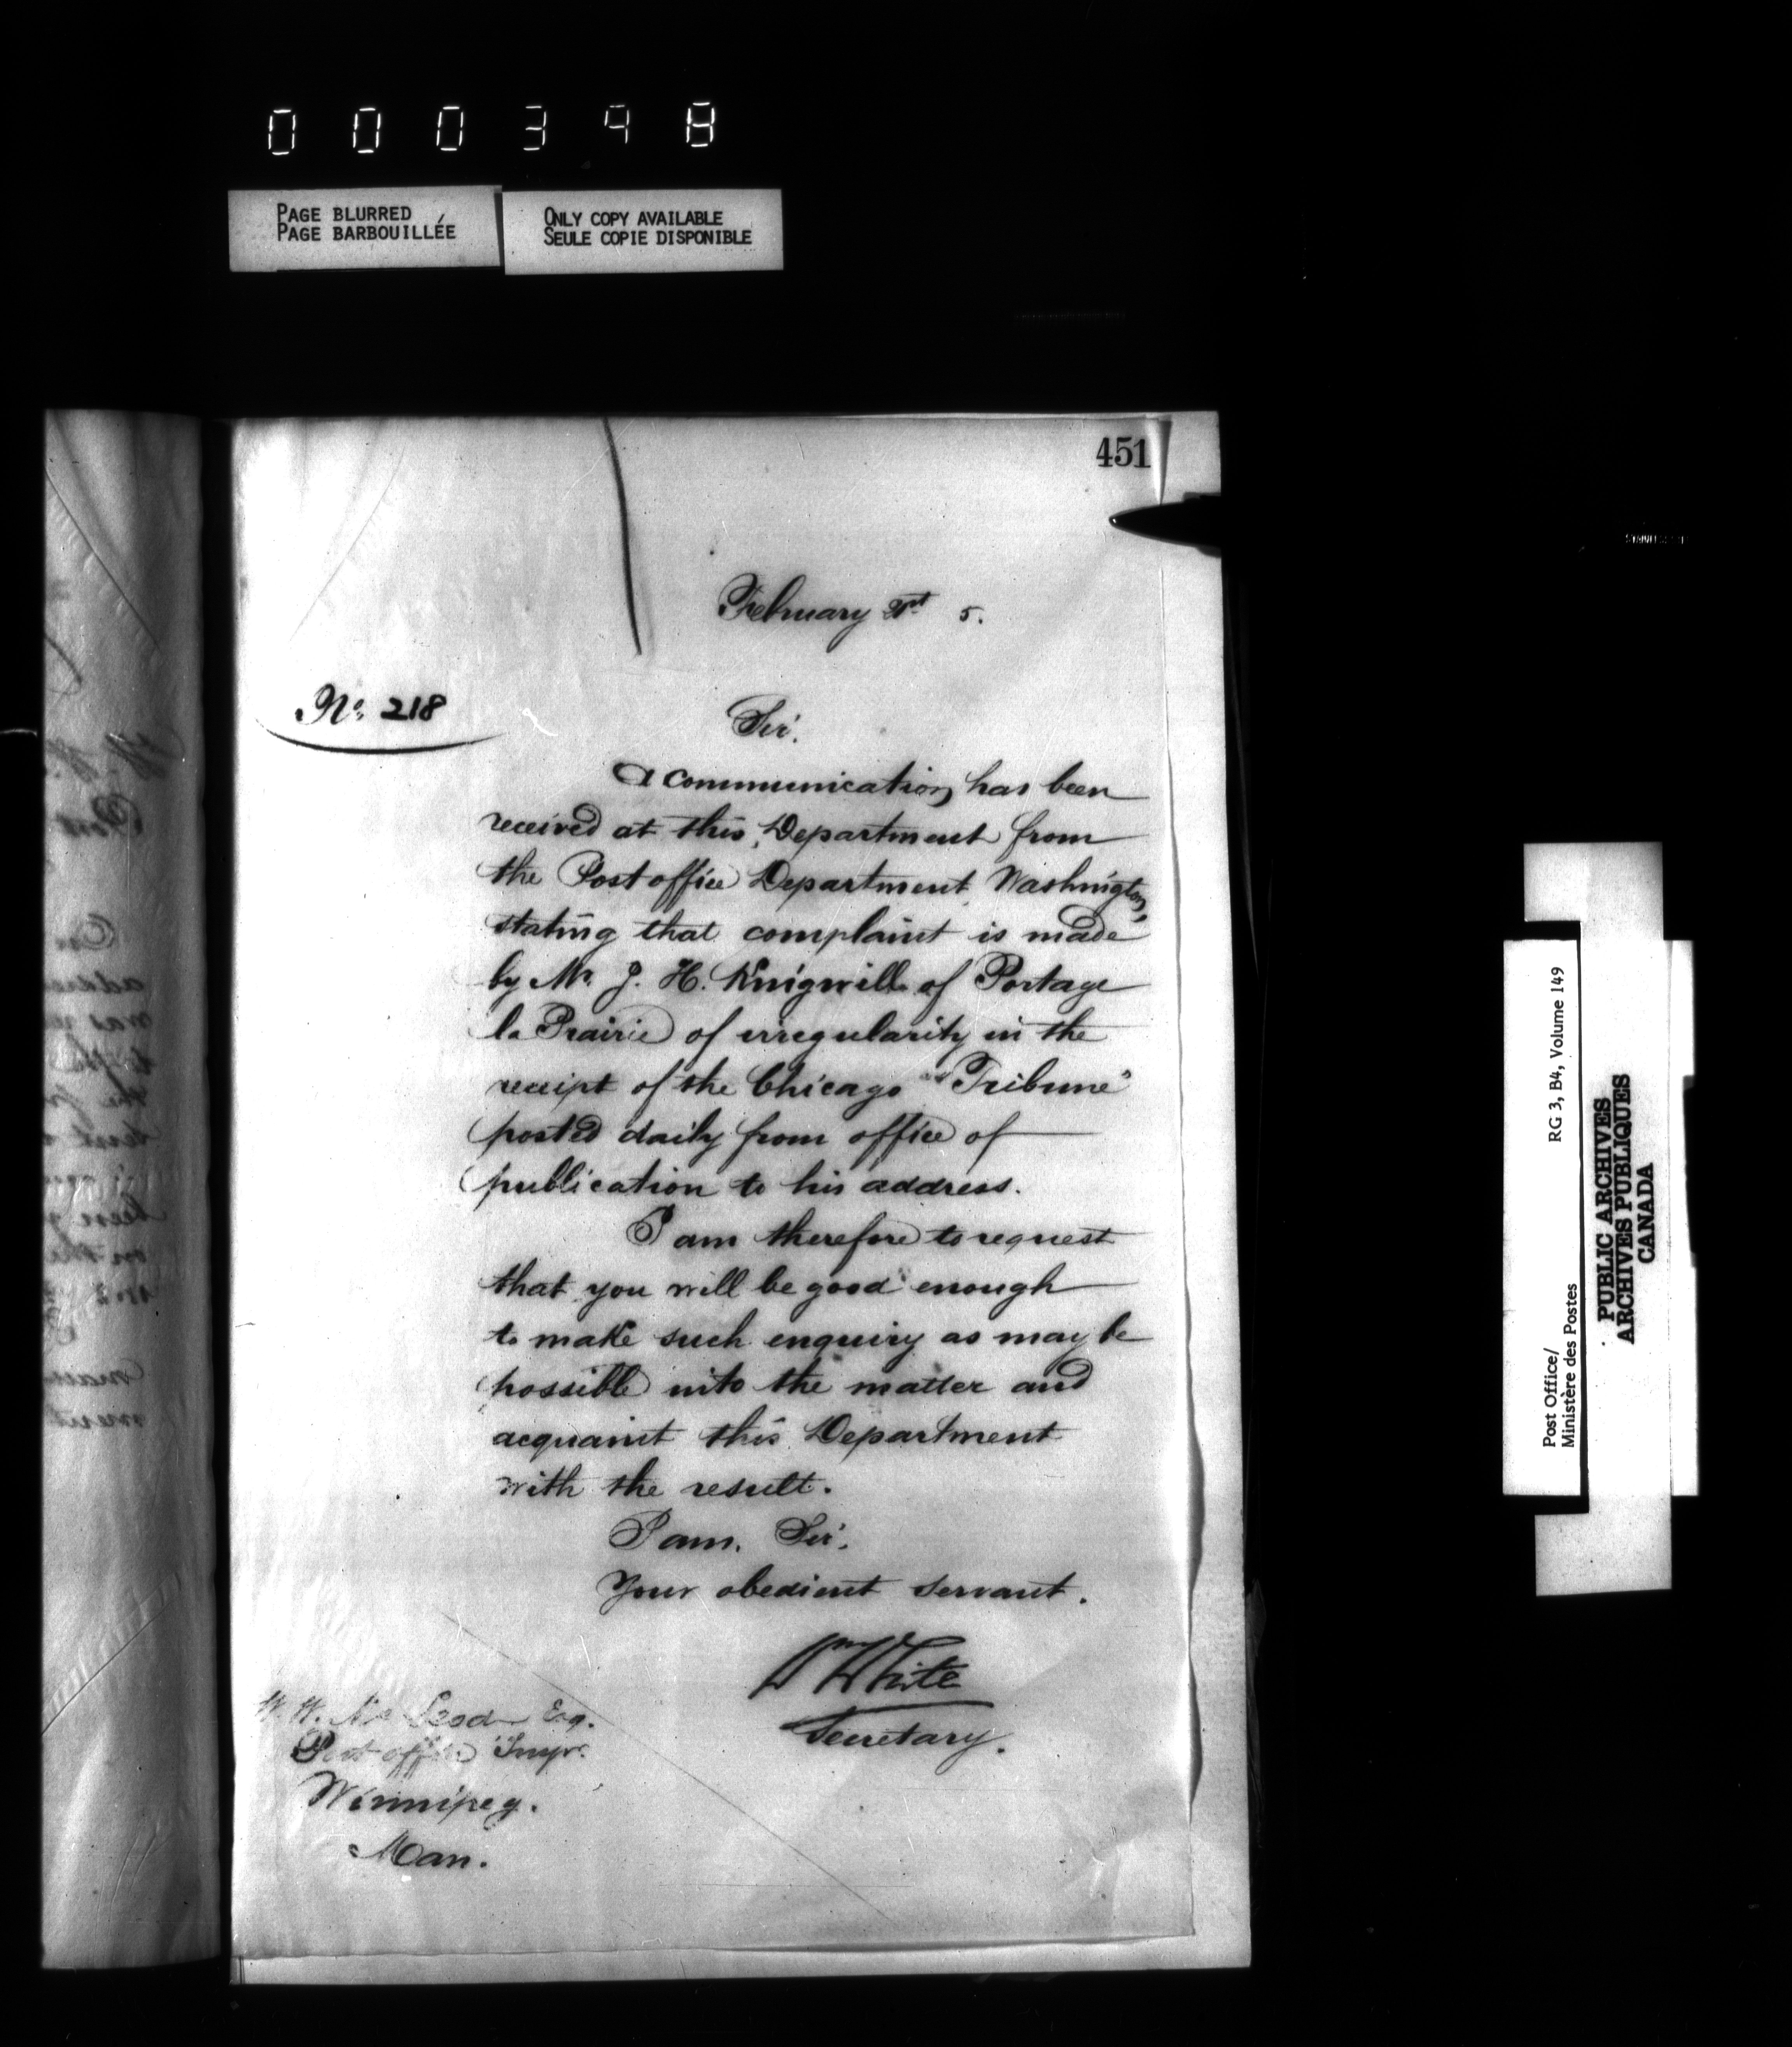 000398
PAGE BLURRED
PAGE BARBOUILLÉE
ONLY COPY AVAILABLE
SEULE COPIE DISPONIBLE
451
February 5.
No. 218
Sir.
A communication has been
received at this Department from
the Post office Department Washington,
stating that complaint is made
by Mr. J. H. of Portage
la Prairie of irregularity in the
receipt of the Chicago "Tribune"
posted daily from office of
publication to his address.
I am therefore to request
that you will be good enough
to make such enquiry as may be
possible into the matter and
acquaint this Department
with the result.
I am. Sir.
Your obedient servant.
Wm White
Secretary.
W. W. McLeod Esq.
Post office Inspr.
Winnipeg.
Man.
Post Office/ RG 3, B4, Volume 149
Ministère des Postes
PUBLIC ARCHIVES
ARCHIVES PUBLIQUES
CANADA